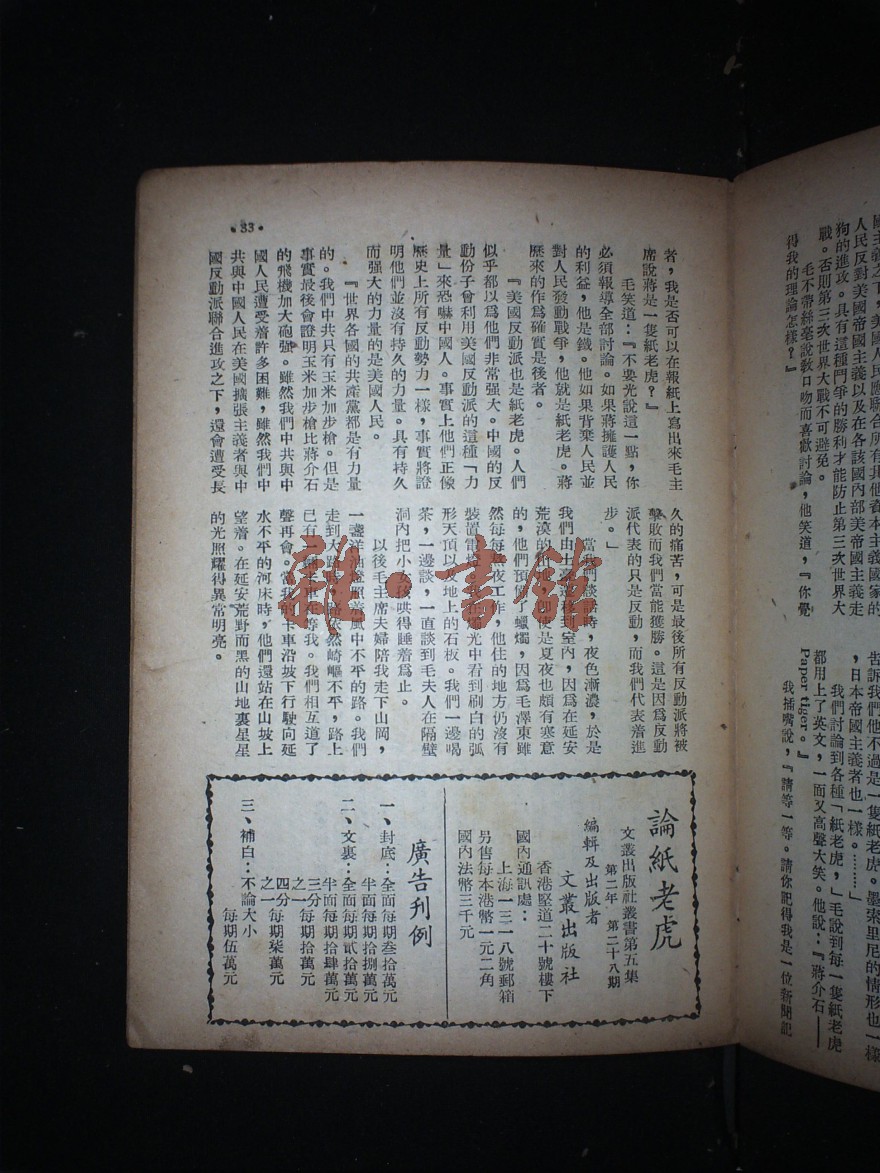 國主義之下，美國人民應聯合所有其他資本主義國家的
人民反對美國帝國主義以及在各該國內部美帝國主義走
狗的進攻。具有這種鬥爭的勝利才能防止第三次世界大
戰。否則第三次世界大戰不可避免。
毛不帶絲毫說教口吻而喜歡討論，他笑道，『你覺
得我的理論怎樣？』
告訴我們他不過是一隻紙老虎。墨索里尼的情形也一樣
，日本帝國主義者也一樣。……』
我們討論到各種「紙老虎，」毛說到每一隻紙老虎
都用上了英文，一面又高聲大笑。他說：『蔣介石——
Paper tiger。』
我插嘴說，『請等一等。請你記得我是一位新聞記
·33·
者，我是否可以在報紙上寫出來毛主
席說蔣是一隻紙老虎？』
毛笑道：『不要光說這一點，你
必須報導全部討論。如果蔣擁護人民
的利益，他是鐵。他如果背棄人民並
對人民發動戰爭，他就是紙老虎。蔣
歷來的作爲確實是後者。
『美國反動派也是紙老虎。人們
似乎都以爲他們非常强大。中國的反
動份子曾利用美國反動派的這種「力
量」來恐嚇中國人。事實上他們正像
歷史上所有反動勢力一樣，事實將證
明他們並沒有持久的力量。具有持久
而强大的力量的是美國人民。
『世界各國的共產黨都是有力量
的。我們中共只有玉米加步槍。但是
事實最後會證明玉米加步槍比蔣介石
的飛機加大砲强。雖然我們中共與中
國人民遭受着許多困難，雖然我們中
共與中國人民在美國擴張主義者與中
國反動派聯合進攻之下，還會遭受長
久的痛苦，可是最後所有反動派將被
擊敗而我們當能獲勝。這是因爲反動
派代表的只是反動，而我們代表着進
步。」
當我們談話時，夜色漸濃，於是
我們由土臺遷移到室內，因爲在延安
荒漠的 卽使是夏夜也頗有寒意
的，他們預備了蠟燭，因爲毛澤東雖
然每每 夜工作，他住的地方仍沒有
裝置電燈 燭光中看到刷白的弧
形天頂以及地上的石板。我們一邊喝
茶，一邊談，一直談到毛夫人在隔壁
洞內把小女孩哄得睡着爲止。
以後毛主席夫婦陪我走下山岡，
一盞洋油燈照着風中不平的路。我們
走到大路時，路依然崎嶇不平，路上
已有一輛卡車在等我。我們相互道了
聲再會。當我的卡車沿坡下行駛向延
水不平的河床時，他們還站在山坡上
望着。在延安荒野而黑的山地裏星星
的光照耀得異常明亮。
論紙老虎
文叢出版社叢書第五集
第二年 第二十八期
編輯及出版者
文叢出版社
香港堅道二十號樓下
國內通訊處：
上海一三一八號郵箱
另售每本港幣一元二角
國內法幣三千元
廣告刊例
一、封底：全面每期叁拾萬元
半面每期拾捌萬元
二、文裏：全面每期貳拾萬元
半面每期拾肆萬元
三分之一每期拾萬元
四分之一每期柒萬元
三、補白：不論大小
每期伍萬元
雜·書館